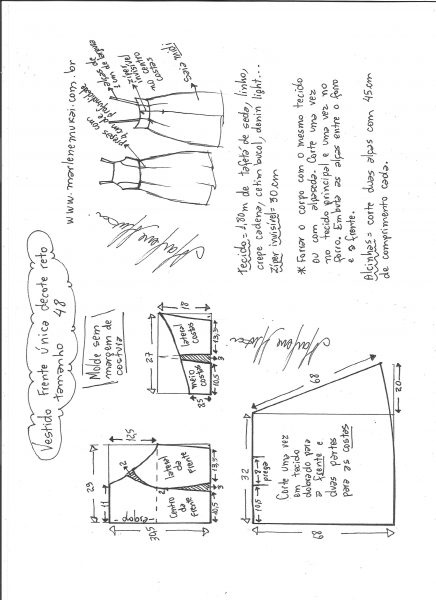 Vestido Frente única decote reto
tamanho 48
www.marlenemukai.com.br
Molde sem
margem de
costura
pregas com
4cm de
profundidade
alças de
1cm de largura
zíper
invisível
no centro
costas
Saia midi
29
11
12,5
30,5
dobra
Centro
da
frente
lateral
da
frente
2
2
10,5
3
13,5
27
18
25
meio
costas
lateral
costas
10,5
3
13,5
Tecido = 1,80m de tafetá de seda, linho,
crepe cadena, cetim bucol, denin light...
Zíper invisível = 30 cm
* Forrar o corpo com o mesmo tecido
ou com alpaseda. Corte uma vez
no tecido principal e uma vez no
forro. Embuta as alças entre o forro
e a frente.
Alcinhas = corte duas alças com 45cm
de comprimento cada.
32
10,5
8
prega
Corte uma vez
em tecido
dobrado para
a frente e
duas partes
para as costas
68
68
20